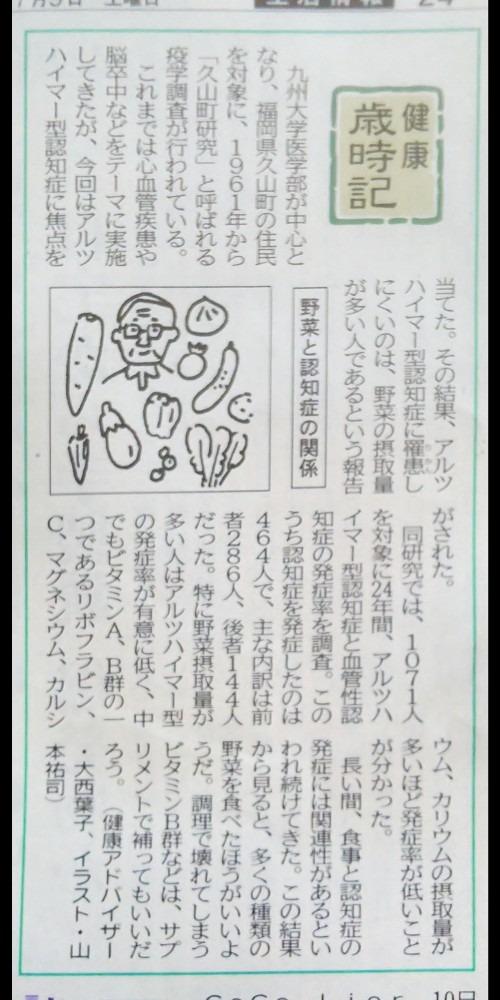 健康
歳時記
九州大学医学部が中心と
なり、福岡県久山町の住民
を対象に、１９６１年から
「久山町研究」と呼ばれる
疫学調査が行われている。
これまでは心血管疾患や
脳卒中などをテーマに実施
してきたが、今回はアルツ
ハイマー型認知症に焦点を
当てた。その結果、アルツ
ハイマー型認知症に罹患し
りかん
にくいのは、野菜の摂取量
が多い人であるという報告
野菜と認知症の関係
がされた。
同研究では、１０７１人
を対象に24年間、アルツハ
イマー型認知症と血管性認
知症の発症率を調査。この
うち認知症を発症したのは
４６４人で、主な内訳は前
者２８６人、後者１４４人
だった。特に野菜摂取量が
多い人はアルツハイマー型
の発症率が有意に低く、中
でもビタミンＡ、Ｂ群の一
つであるリボフラビン、
Ｃ、マグネシウム、カルシ
ウム、カリウムの摂取量が
多いほど発症率が低いこと
が分かった。
長い間、食事と認知症の
発症には関連性があるとい
われ続けてきた。この結果
から見ると、多くの種類の
野菜を食べたほうがいいよ
うだ。調理で壊れてしまう
ビタミンＢ群などは、サプ
リメントで補ってもいいだ
ろう。（健康アドバイザー
・大西葉子、イラスト・山
本祐司）